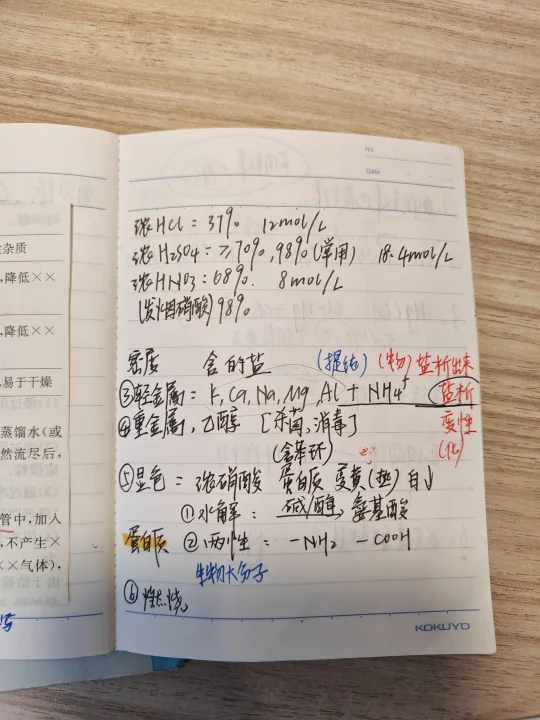 杂质
,降低××
,降低××
,易于干燥
蒸馏水(或
然流尽后,
管中,加入
,不产生×
××气体),
No
Date
浓HCl: 37% 12mol/L
浓H2SO4: ≥70%, 98%(常用) 18.4mol/L
浓HNO3: 68%. 8mol/L
(发烟硝酸)98%
密度 含的盐 (提纯) (物) 盐析出来
③轻金属: K, Ca, Na, Mg, Al + NH4+ 盐析
④重金属, 乙醇 [杀菌、消毒] 变性
(含苯环) (化)
⑤显色: 浓硝酸 蛋白质 变黄(热) 白↓
①水解: 碱/酶, 氨基酸
蛋白质 ②两性: -NH2 -COOH
生物大分子
⑥燃烧
KOKUYO